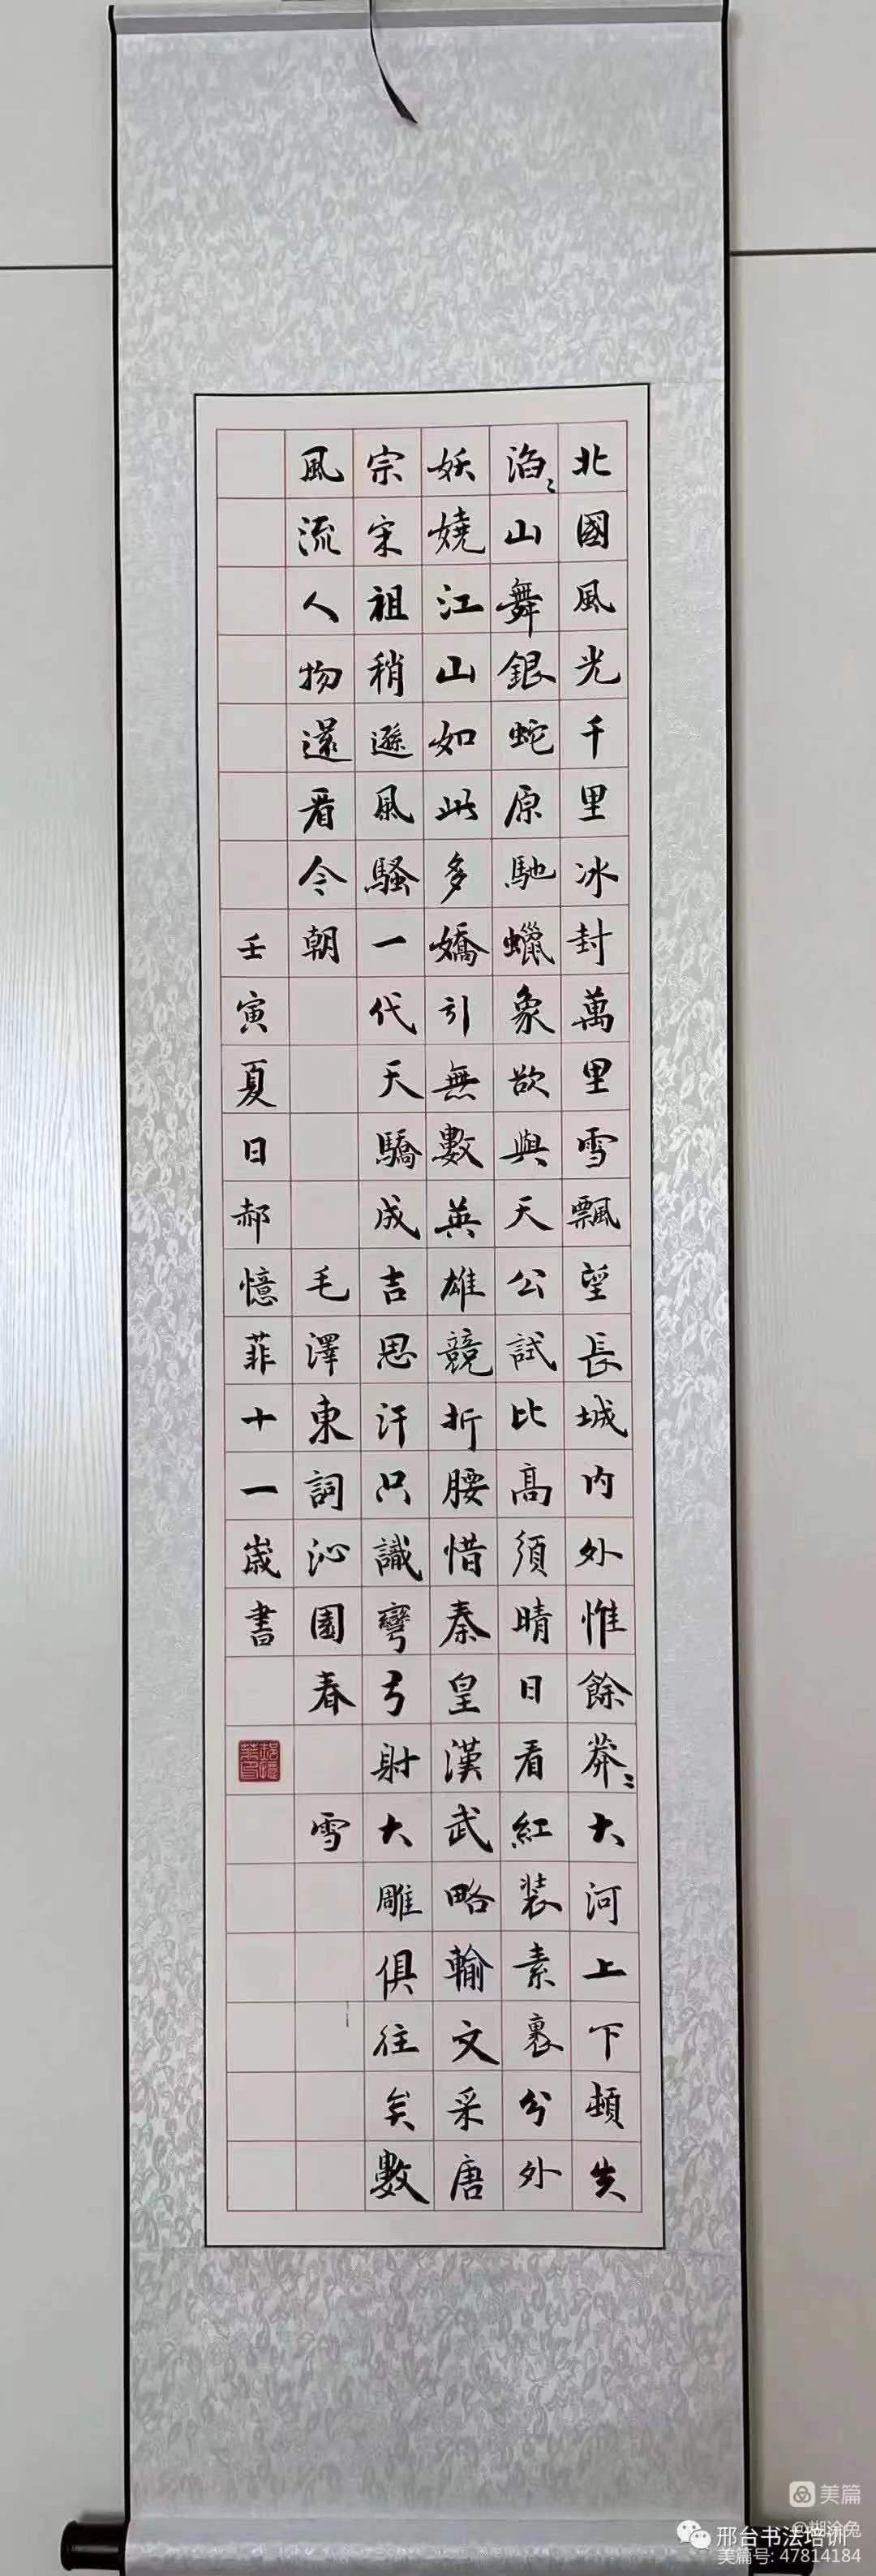 北國風光千里冰封萬里雪飄望長城内外惟餘莽〻大河上下頓失
滔〻山舞銀蛇原馳蠟象欲與天公試比高須晴日看紅装素裹分外
妖嬈江山如此多嬌引無數英雄競折腰惜秦皇漢武略輸文采唐
宗宋祖稍遜風騷一代天驕成吉思汗只識彎弓射大雕俱往矣數
風流人物還看今朝 毛澤東詞沁園春 雪
壬寅夏日郝憶菲十一歲書
美篇
@糊涂兔
邢台书法培训
美篇号: 47814184